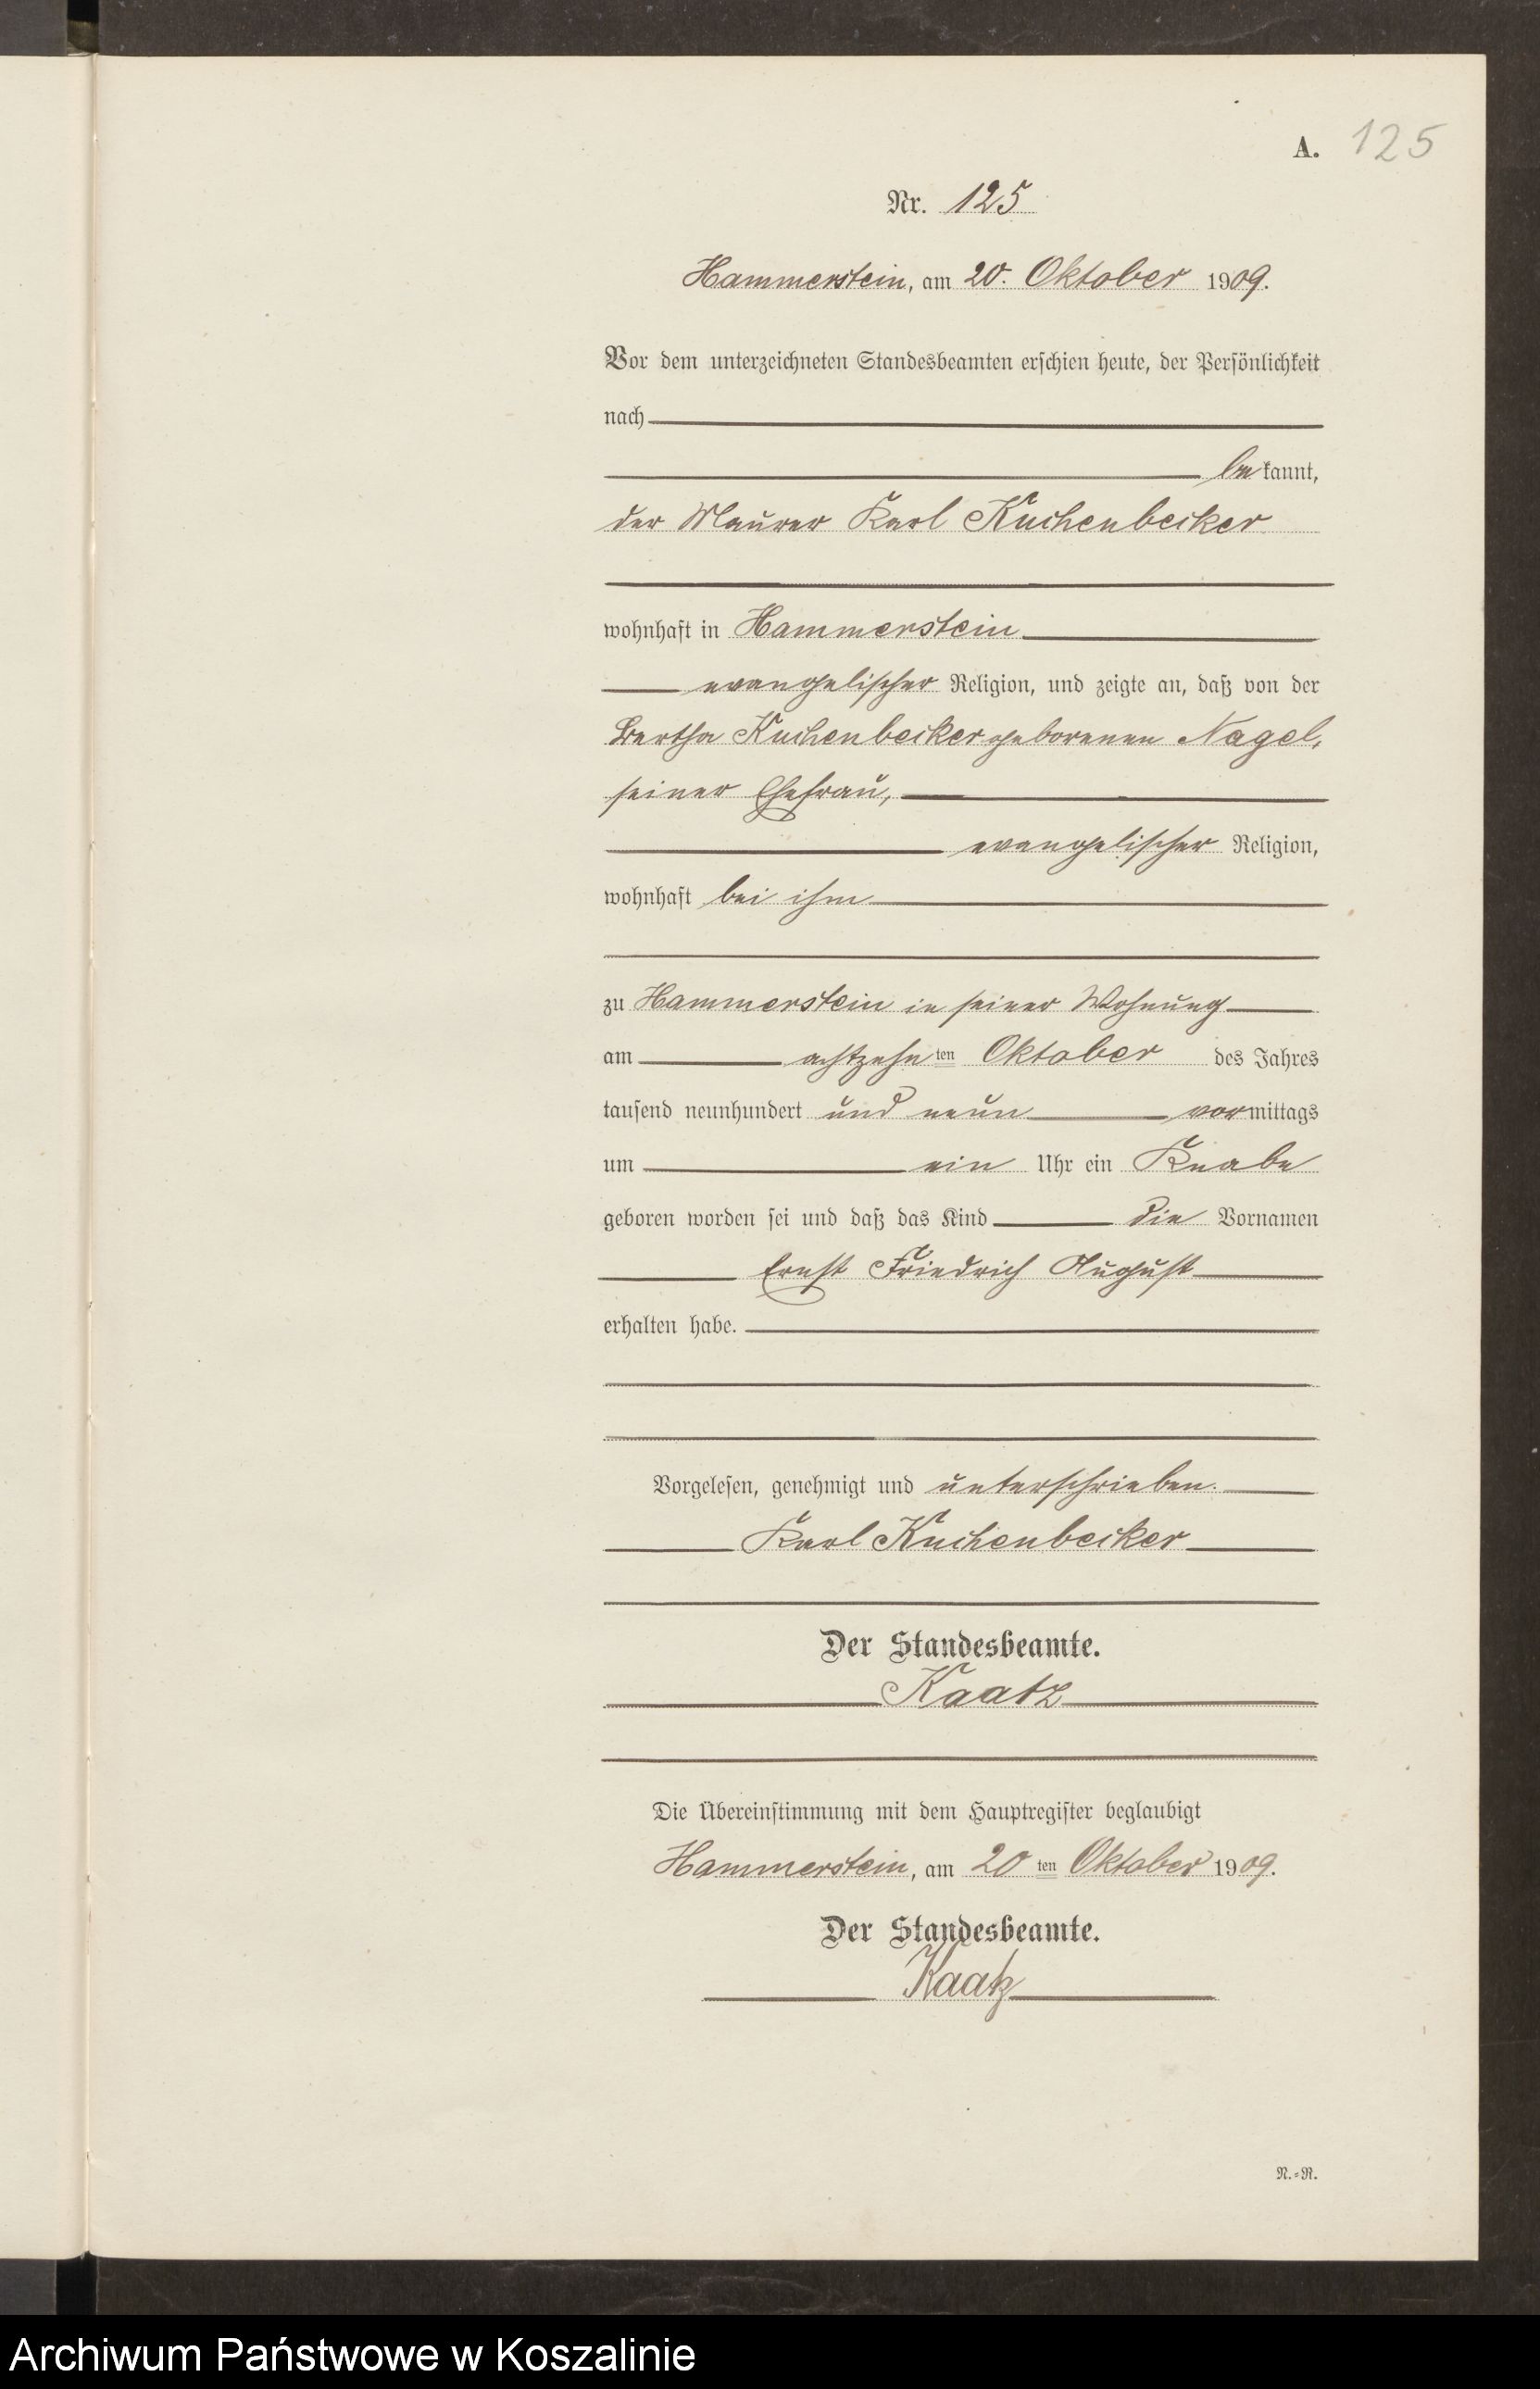 A. 125
Nr. 125
Hammerstein, am 20. Oktober 1909.
Vor dem unterzeichneten Standesbeamten erschien heute, der Persönlichkeit
nach
bekannt,
der Maurer Karl Kuchenbecker
wohnhaft in Hammerstein
evangelischer Religion, und zeigte an, daß von der
Bertha Kuchenbecker geborenen Nagel,
seiner Ehefrau,
evangelischer Religion,
wohnhaft bei ihm
zu Hammerstein in seiner Wohnung
am achtzehnten Oktober des Jahres
tausend neunhundert und neun vormittags
um ein Uhr ein Knabe
geboren worden sei und daß das Kind die Vornamen
Ernst Friedrich August
erhalten habe.
Vorgelesen, genehmigt und unterschrieben.
Karl Kuchenbecker
Der Standesbeamte.
Kaatz
Die Übereinstimmung mit dem Hauptregister beglaubigt
Hammerstein, am 20ten Oktober 1909.
Der Standesbeamte.
Kaatz
N.=R.
Archiwum Państwowe w Koszalinie